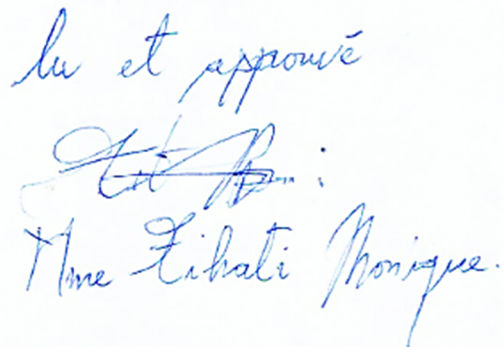 lu et approuvé
Mme Zihati Monique.